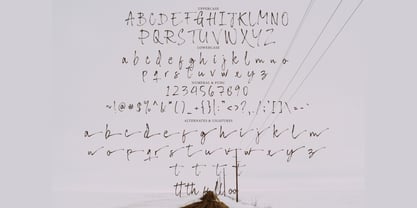 UPPERCASE
ABCDEFGHIJKLMNO
PQRSTUVWXYZ
LOWERCASE
a b c d e f g h i j k l m n o
p q r s t u v w x y z
NUMERAL & PUNC
1234567890
~!@#$%^&*()_-+{}|:"<>?,./;'[]\=-`
ALTERNATES & LIGATURES
a b c d e f g h i j k l m
n o p q r s t u v w x y z
t t t t
tt th ll oo